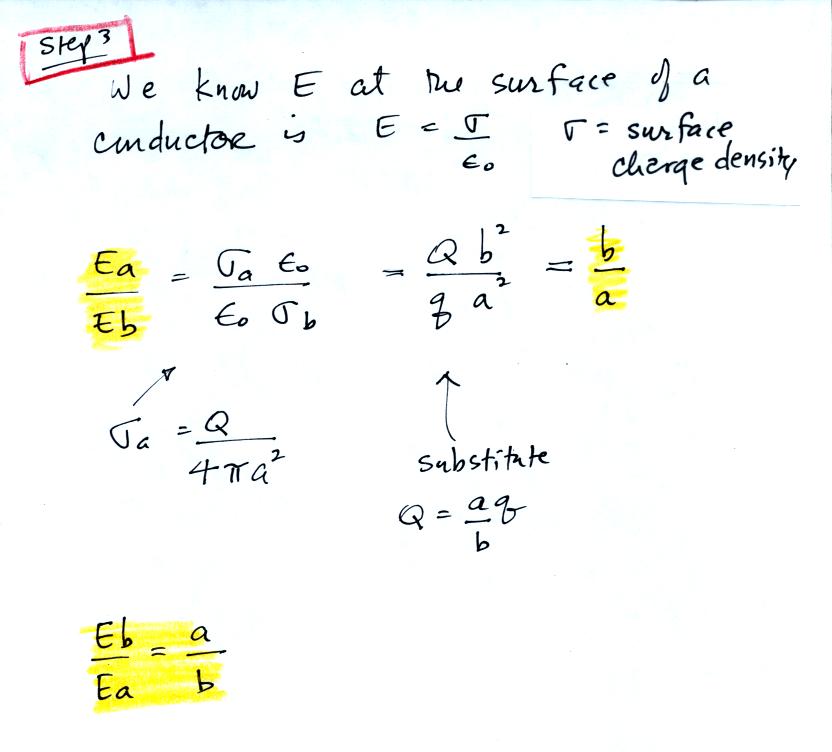 Step 3
We know E at the surface of a
conductor is E = σ/ε₀ σ = surface
charge density
Ea/Eb = σa ε₀/ε₀ σb = Q b²/q a² = b/a
σa = Q/4πa²
substitute
Q = aq/b
Eb/Ea = a/b